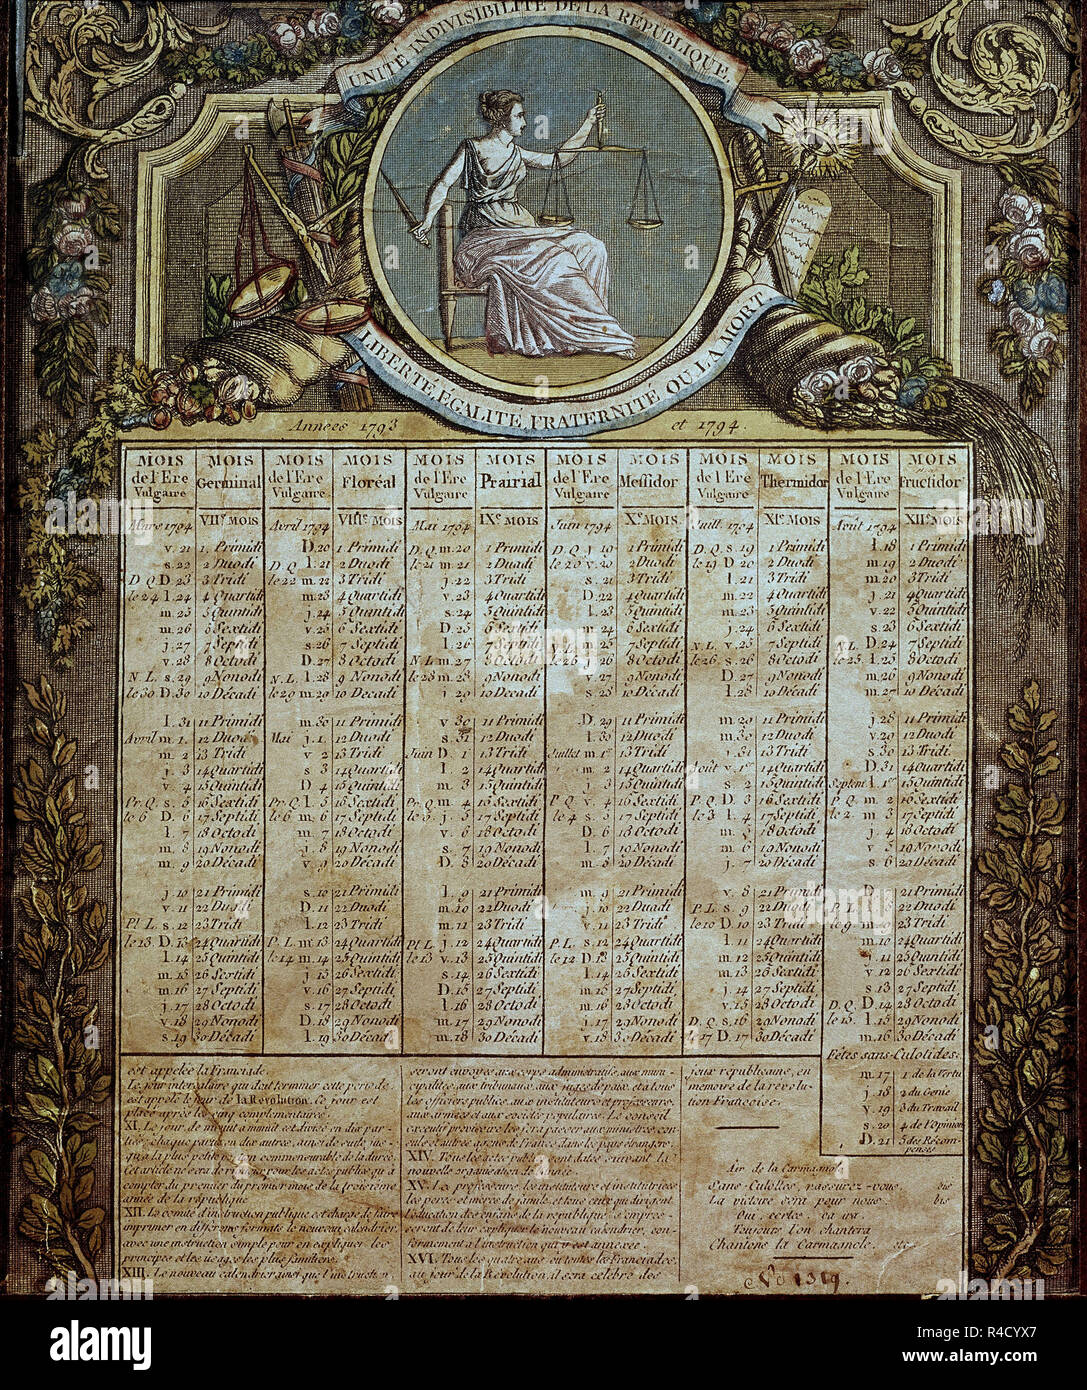 UNITÉ INDIVISIBILITÉ DE LA REPUBLIQUE.
LIBERTÉ, ÉGALITÉ, FRATERNITÉ OU LA MORT
Années 1793 et 1794.
MOIS de l'Ere Vulgaire MOIS Germinal MOIS de l'Ere Vulgaire MOIS Floréal MOIS de l'Ere Vulgaire MOIS Prairial MOIS de l'Ere Vulgaire MOIS Messidor MOIS de l'Ere Vulgaire MOIS Thermidor MOIS de l'Ere Vulgaire MOIS Fructidor
Mars 1794 VIIe MOIS Avril 1794 VIIIe MOIS Mai 1794 IXe MOIS Juin 1794 Xe MOIS Juill. 1794 XIe MOIS Août 1794 XIIe MOIS
v. 21 1 Primidi D. 20 1 Primidi D.Q. m. 20 1 Primidi D.Q. j. 19 1 Primidi D.Q. s. 19 1 Primidi l. 18 1 Primidi
s. 22 2 Duodi D.Q. l. 21 2 Duodi le 21 m. 21 2 Duodi le 20 v. 20 2 Duodi le 19 D. 20 2 Duodi m. 19 2 Duodi
D.Q. D. 23 3 Tridi le 22 m. 22 3 Tridi j. 22 3 Tridi s. 21 3 Tridi l. 21 3 Tridi m. 20 3 Tridi
le 24 l. 24 4 Quartidi m. 23 4 Quartidi v. 23 4 Quartidi D. 22 4 Quartidi m. 22 4 Quartidi j. 21 4 Quartidi
m. 25 5 Quintidi j. 24 5 Quintidi s. 24 5 Quintidi l. 23 5 Quintidi m. 23 5 Quintidi v. 22 5 Quintidi
m. 26 6 Sextidi v. 25 6 Sextidi D. 25 6 Sextidi m. 24 6 Sextidi j. 24 6 Sextidi s. 23 6 Sextidi
j. 27 7 Septidi s. 26 7 Septidi l. 26 7 Septidi m. 25 7 Septidi N.L. v. 25 7 Septidi N.L. D. 24 7 Septidi
v. 28 8 Octodi D. 27 8 Octodi N.L. m. 27 8 Octodi j. 26 8 Octodi le 26 s. 26 8 Octodi le 25 l. 25 8 Octodi
N.L. s. 29 9 Nonodi N.L. l. 28 9 Nonodi le 28 m. 28 9 Nonodi v. 27 9 Nonodi D. 27 9 Nonodi m. 26 9 Nonodi
le 30 D. 30 10 Décadi le 29 m. 29 10 Décadi j. 29 10 Décadi s. 28 10 Décadi l. 28 10 Décadi m. 27 10 Décadi
l. 31 11 Primidi m. 30 11 Primidi v. 30 11 Primidi D. 29 11 Primidi m. 29 11 Primidi j. 28 11 Primidi
Avril m. 1 12 Duodi Mai j. 1 12 Duodi s. 31 12 Duodi l. 30 12 Duodi m. 30 12 Duodi v. 29 12 Duodi
m. 2 13 Tridi v. 2 13 Tridi Juin D. 1 13 Tridi Juillet m. 1er 13 Tridi j. 31 13 Tridi s. 30 13 Tridi
j. 3 14 Quartidi s. 3 14 Quartidi l. 2 14 Quartidi m. 2 14 Quartidi Août v. 1er 14 Quartidi D. 31 14 Quartidi
v. 4 15 Quintidi D. 4 15 Quintidi m. 3 15 Quintidi j. 3 15 Quintidi s. 2 15 Quintidi Septem. l. 1er 15 Quintidi
Pr. Q. s. 5 16 Sextidi Pr. Q. l. 5 16 Sextidi Pr. Q. m. 4 16 Sextidi P. Q. v. 4 16 Sextidi P. Q. D. 3 16 Sextidi P. Q. m. 2 16 Sextidi
le 6 D. 6 17 Septidi le 6 m. 6 17 Septidi j. 5 17 Septidi le 4 s. 5 17 Septidi le 3 l. 4 17 Septidi le 2 m. 3 17 Septidi
l. 7 18 Octodi m. 7 18 Octodi v. 6 18 Octodi D. 6 18 Octodi m. 5 18 Octodi j. 4 18 Octodi
m. 8 19 Nonodi j. 8 19 Nonodi s. 7 19 Nonodi l. 7 19 Nonodi m. 6 19 Nonodi v. 5 19 Nonodi
m. 9 20 Décadi v. 9 20 Décadi D. 8 20 Décadi m. 8 20 Décadi j. 7 20 Décadi s. 6 20 Décadi
j. 10 21 Primidi s. 10 21 Primidi l. 9 21 Primidi m. 9 21 Primidi v. 8 21 Primidi D. 21 Primidi
v. 11 22 Duodi D. 11 22 Duodi m. 10 22 Duodi j. 10 22 Duodi P. L. s. 9 22 Duodi P. L. l. 8 22 Duodi
Pl. L. s. 12 23 Tridi l. 12 23 Tridi m. 11 23 Tridi v. 11 23 Tridi le 10 D. 10 23 Tridi m. 9 23 Tridi
le 13 D. 13 24 Quartidi P. L. m. 13 24 Quartidi Pl. L. j. 12 24 Quartidi P. L. s. 12 24 Quartidi l. 11 24 Quartidi m. 10 24 Quartidi
l. 14 25 Quintidi le 14 m. 14 25 Quintidi le 13 v. 13 25 Quintidi le 12 D. 13 25 Quintidi m. 12 25 Quintidi j. 11 25 Quintidi
m. 15 26 Sextidi j. 15 26 Sextidi s. 14 26 Sextidi l. 14 26 Sextidi m. 13 26 Sextidi v. 12 26 Sextidi
m. 16 27 Septidi v. 16 27 Septidi D. 15 27 Septidi m. 15 27 Septidi j. 14 27 Septidi s. 13 27 Septidi
j. 17 28 Octodi s. 17 28 Octodi l. 16 28 Octodi m. 16 28 Octodi v. 15 28 Octodi D. Q. D. 14 28 Octodi
v. 18 29 Nonodi D. 18 29 Nonodi m. 17 29 Nonodi j. 17 29 Nonodi D. Q. s. 16 29 Nonodi le 15. l. 15 29 Nonodi
s. 19 30 Décadi l. 19 30 Décadi m. 18 30 Décadi v. 18 30 Décadi le 17 D. 17 30 Décadi m. 16 30 Décadi
Fêtes sans-Culotides.
m. 17 1 de la Vertu
j. 18 2 du Génie
v. 19 3 du Travail
s. 20 4 de l'Opinion
D. 21 5 des Récompenses
est appelée la Franciade.
Le jour intercalaire qui doit terminer cette période
est appelé le jour de la Révolution. Ce jour est
placé après les cinq complémentaires.
XI. Le jour, de minuit à minuit est divisé en dix par-
ties; chaque partie en dix autres, ainsi de suite jus-
qu'à la plus petite portion commensurable de la durée.
Cet article ne sera de rigueur pour les actes publics qu'à
compter du premier du premier mois de la troisième
année de la république.
XII. Le comité d'instruction publique est chargé de faire
imprimer en différens formats le nouveau calendrier,
avec une instruction simple pour en expliquer les
principes et les usages les plus familiers.
XIII. Le nouveau calendrier ainsi que l'instruction,
seront envoyés aux corps administratifs, aux muni-
cipalités, aux tribunaux, aux juges de paix et à tous
les officiers publics, aux instituteurs et professeurs,
aux armées et aux sociétés populaires. Le conseil
exécutif provisoire les fera passer aux ministres, con-
suls et autres agens de France dans les pays étrangers.
XIV. Tous les actes publics seront datés suivant la
nouvelle organisation de l'année.
XV. Les professeurs, les instituteurs et institutrices,
les pères et mères de famille et tous ceux qui dirigent
l'éducation des enfans de la république s'empres-
seront de leur expliquer le nouveau calendrier, con-
formément à l'instruction qui y est annexée.
XVI. Tous les quatre ans ou toutes les Franciades,
au jour de la Révolution, il sera célébré des
jeux républicains, en
mémoire de la révolu-
tion Française.
Air de la Carmagnole
Sans-Culottes, rassurez-vous, bis
La victoire sera pour nous: bis
Oui, certes, ça ira.
Toujours l'on chantera
Chantons la Carmagnole, etc.
No 1319.
alamy
Image ID: R4CYX7
www.alamy.com